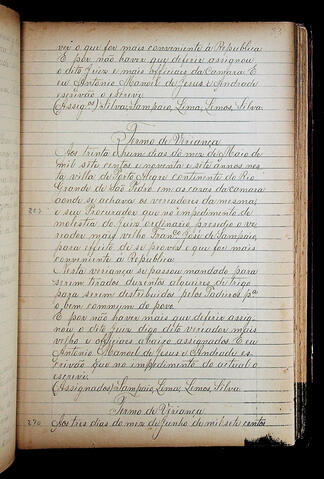 ver o que for mais conveniente á Republica.
E por não haver que deferir assignou
o dito Juiz e mais officiaes da Camara E
eu Antonio Manoel de Jesus e Andrade
escrivão o escrevi
(Assig.os) Silva, Sampaio, Lima, Lemos, Silva
Termo de Veriança
Aos trinta e hum dias do mez de Maio de
mil sete centos e noventa e sete annos nes
ta villa de Porto Alegre continente do Rio
Grande de São Pedro em as casas da camara
aonde se achava os veriadores da mesma,
289
e seu Procurador que no impedimento de
molestia do juiz ordinario presidio o ve-
reador mais velho Fran.co José de Sampaio,
para effeito de se prover e que for mais
conveniente á Republica
Nesta veriança se passou mandado para
serem tirados duzentos alqueires de trigo
para serem destribuidos pelos Padeiros p.a
o bem commum do povo
E por não haver mais que deferir assig-
nou o dito juiz digo dito veriador mais
velho e officiaes abaixo assignados E eu
Antonio Manoel de Jesus e Andrade es-
crivão que no impedimento do actual o
escrevi.
(Assignados) Sampaio, Lima, Lemos, Silva
Termo de Veriança
290
Aos tres dias do mez de Junho de mil sete centos